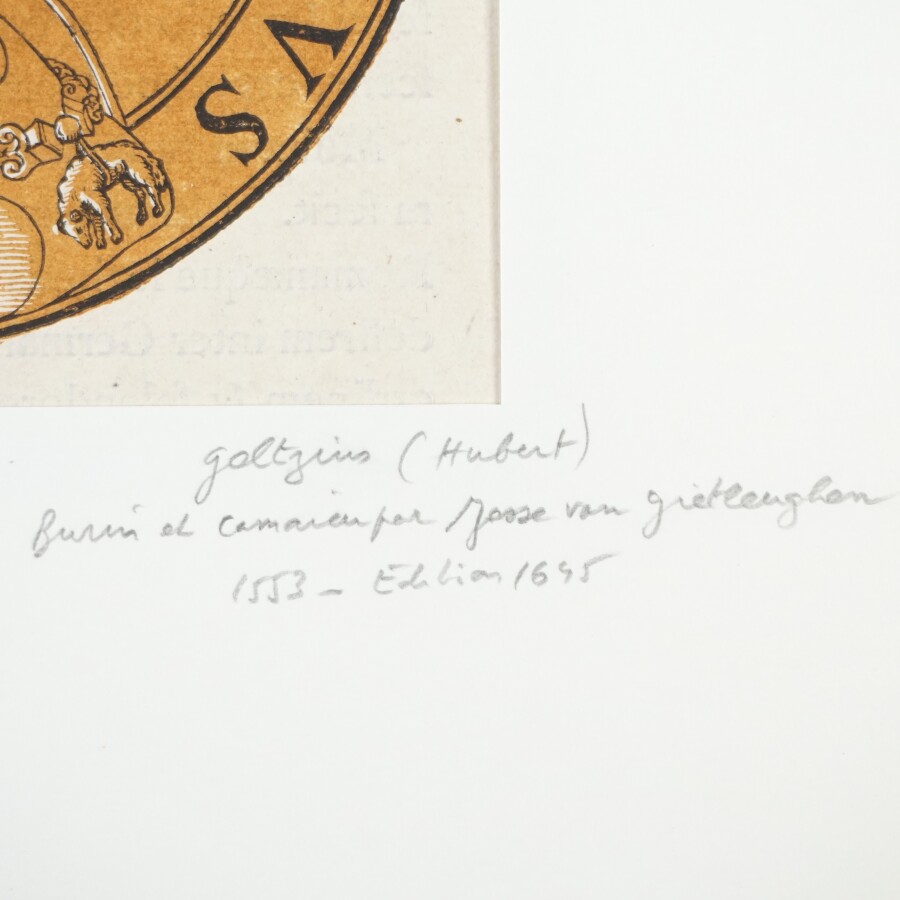 SV
Goltzius (Hubert)
Burin et camaieu par Josse van Gietleughen
1553 - Edition 1645